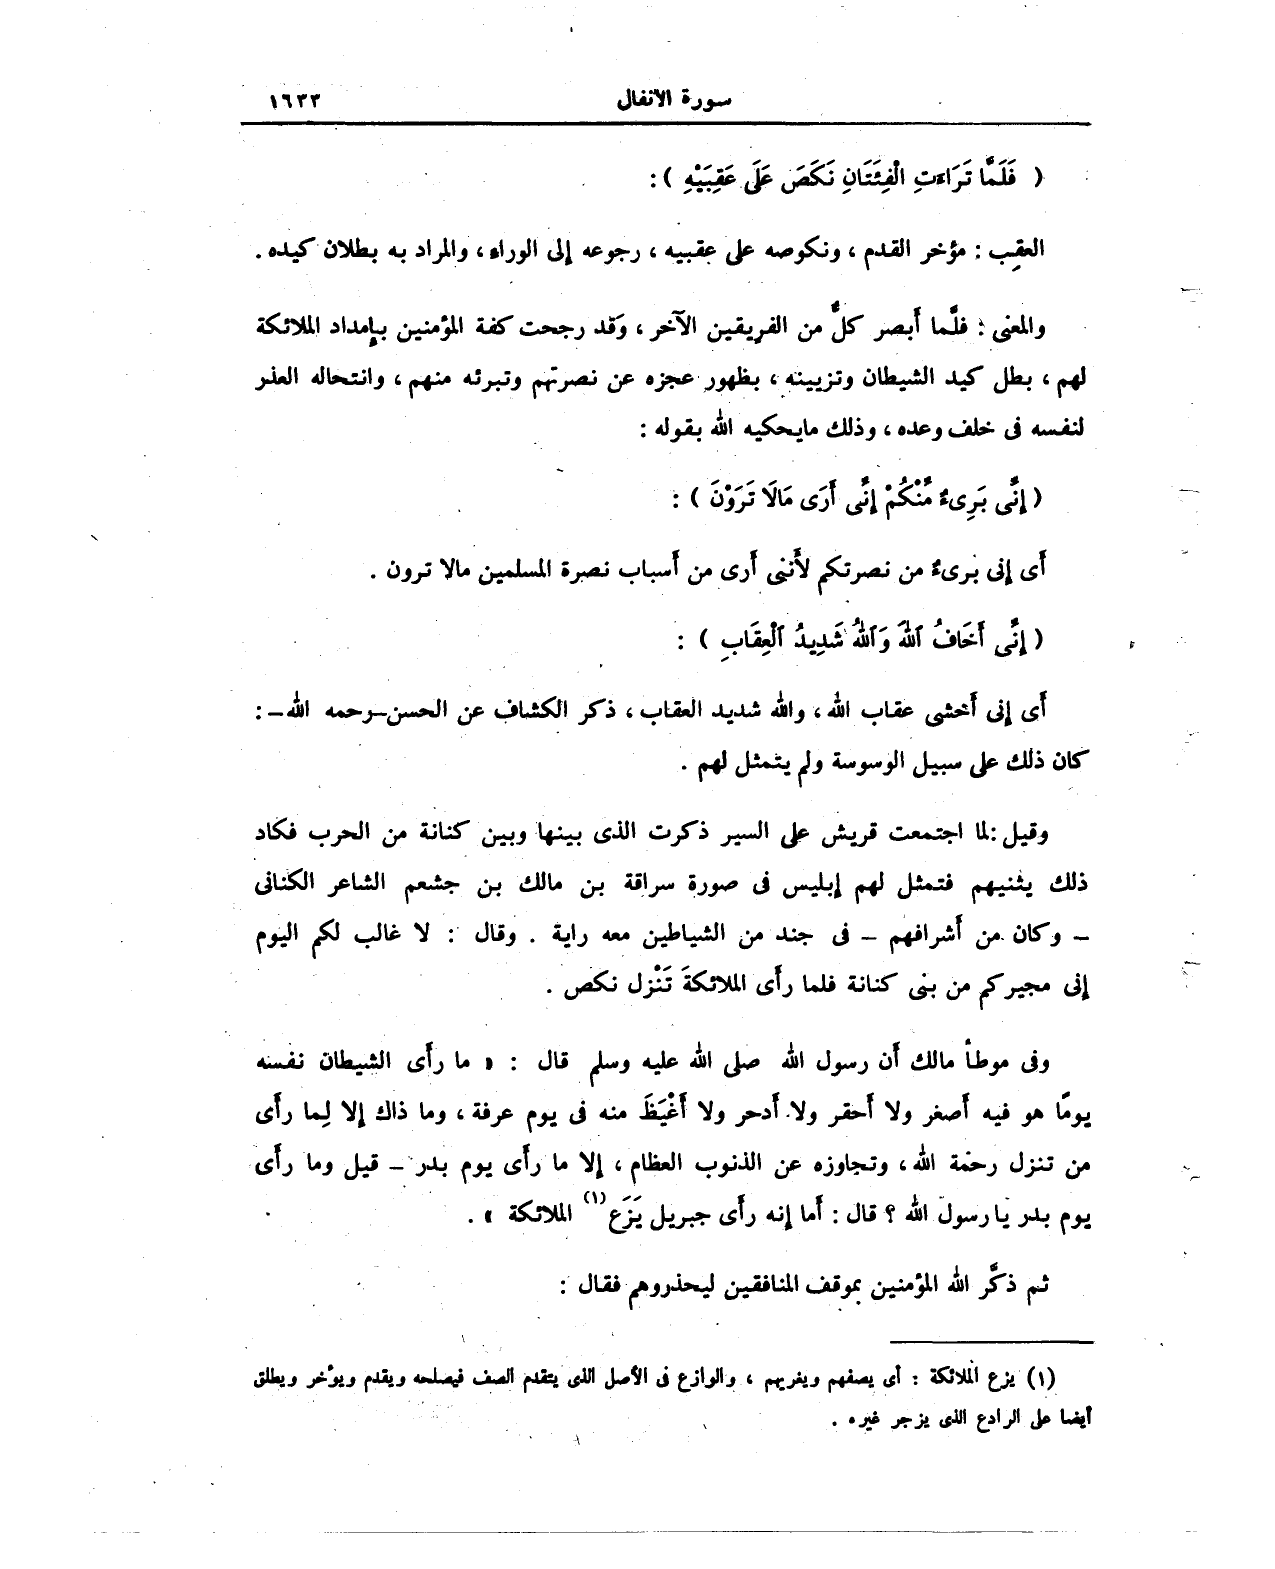 سورة الأنفال
١٦٣٣
( فَلَمَّا تَرَاءَتِ الْفِئَتَانِ نَكَصَ عَلَى عَقِبَيْهِ ) :
العقِب : مؤخر القدم ، ونكوصه على عقبيه ، رجوعه إلى الوراء ، والمراد به بطلان كيده .
والمعنى : فلَّما أَبصر كلٌّ من الفريقين الآخر ، وَقد رجحت كفة المؤمنين بإمداد الملائكة
لهم ، بطل كيد الشيطان وتزيينه ، بظهور عجزه عن نصرتهم وتبرئه منهم ، وانتحاله العذر
لنفسه فى خلف وعده ، وذلك مايحكيه الله بقوله :
( إِنَّى بَرِىءٌ مِّنْكُمْ إِنَّى أَرَى مَالَا تَرَوْنَ ) :
أَى إنى برىءٌ من نصرتكم لأَننى أَرى من أَسباب نصرة المسلمين مالا ترون .
( إِنَّى أَخَافُ ٱللهَ وَٱللهُ شَدِيدُ ٱلْعِقَابِ ) :
أَى إنى أَخشى عقاب الله ، والله شديد العقاب ، ذكر الكشاف عن الحسن–رحمه الله– :
كان ذلك على سبيل الوسوسة ولم يتمثل لهم .
وقيل :لما اجتمعت قريش على السير ذكرت الذى بينها وبين كنانة من الحرب فكاد
ذلك يثنيهم فتمثل لهم إبليس فى صورة سراقة بن مالك بن جشعم الشاعر الكنانى
– وكان من أَشرافهم – فى جند من الشياطين معه راية . وقال : لا غالب لكم اليوم
إنى مجيركم من بنى كنانة فلما رأَى الملائكةَ تَنْزل نكص .
وفى موطأ مالك أَن رسول الله صلى الله عليه وسلم قال : « ما رأَى الشيطان نفسه
يومًا هو فيه أَصغر ولا أَحقر ولا أَدحر ولا أَغْيَظَ منه فى يوم عرفة ، وما ذاك إلا لِما رأَى
من تنزل رحمة الله ، وتجاوزه عن الذنوب العظام ، إلا ما رأَى يوم بدر – قيل وما رأَى
يوم بدر يا رسول الله ؟ قال : أَما إنه رأَى جبريل يَزَع (١) الملائكة » .
ثم ذكَّر الله المؤمنين بموقف المنافقين ليحذروهم فقال :
(١) يزع الملائكة : أى يصفهم ويفريهم ، والوازع فى الأصل الذى يتقدم الصف فيصلحه ويقدم ويؤخر ويطلق
أيضا على الرادع الذى يزجر غيره .